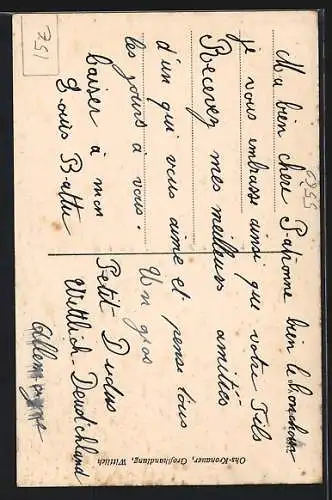 Ma bien chere Papionne bien le bonchour
je vous embrasse ainsi que votre Fils
Recevez mes meilleurs amitiés
d'un qui vous aime et pense tous
les jours à vous. Un gros
baiser à mon Petit Dudus
Louis Battu
Wittlich-Deutschland
Allemagne
Ohs-Kronauer, Großhandlung, Wittlich
751